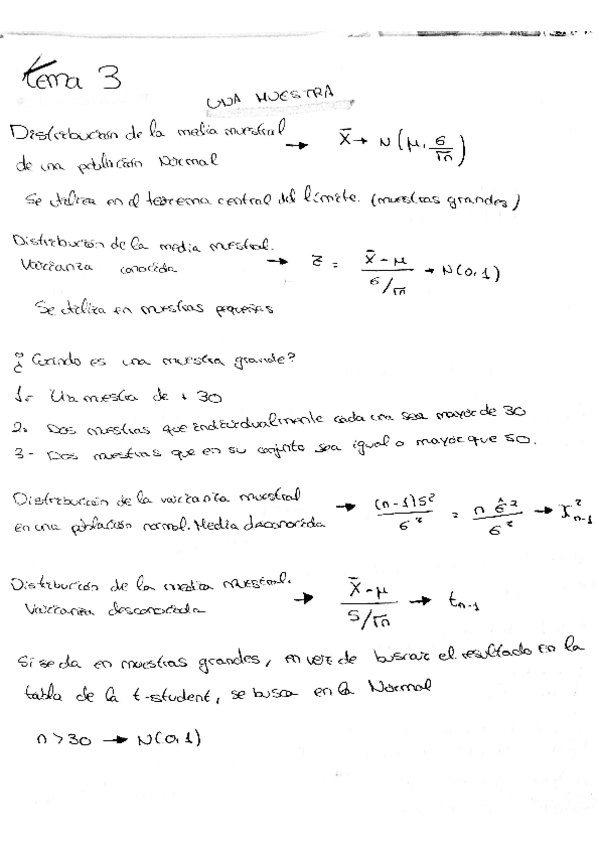 tema 3
UNA MUESTRA
Distribución de la media muestral → X̄ → N(μ, σ/√n)
de una población Normal
Se utiliza en el teorema central del límite. (muestras grandes)
Distribución de la media muestral. → z = (X̄ - μ)/(σ/√n) → N(0,1)
Varianza conocida
Se utiliza en muestras pequeñas
¿Cuando es una muestra grande?
1.- Una muestra de + 30
2. Dos muestras que individualmente cada una sea mayor de 30
3- Dos muestras que en su conjunto sea igual o mayor que 50.
Distribución de la varianza muestral → (n-1)S²/σ² = n σ̂²/σ² → χ²n-1
en una población normal. Media desconocida
Distribución de la media muestral. → (X̄ - μ)/(S/√n) → tn-1
Varianza desconocida
Si se da en muestras grandes, en vez de buscar el resultado en la
tabla de la t-student, se busca en la Normal
n > 30 → N(0,1)